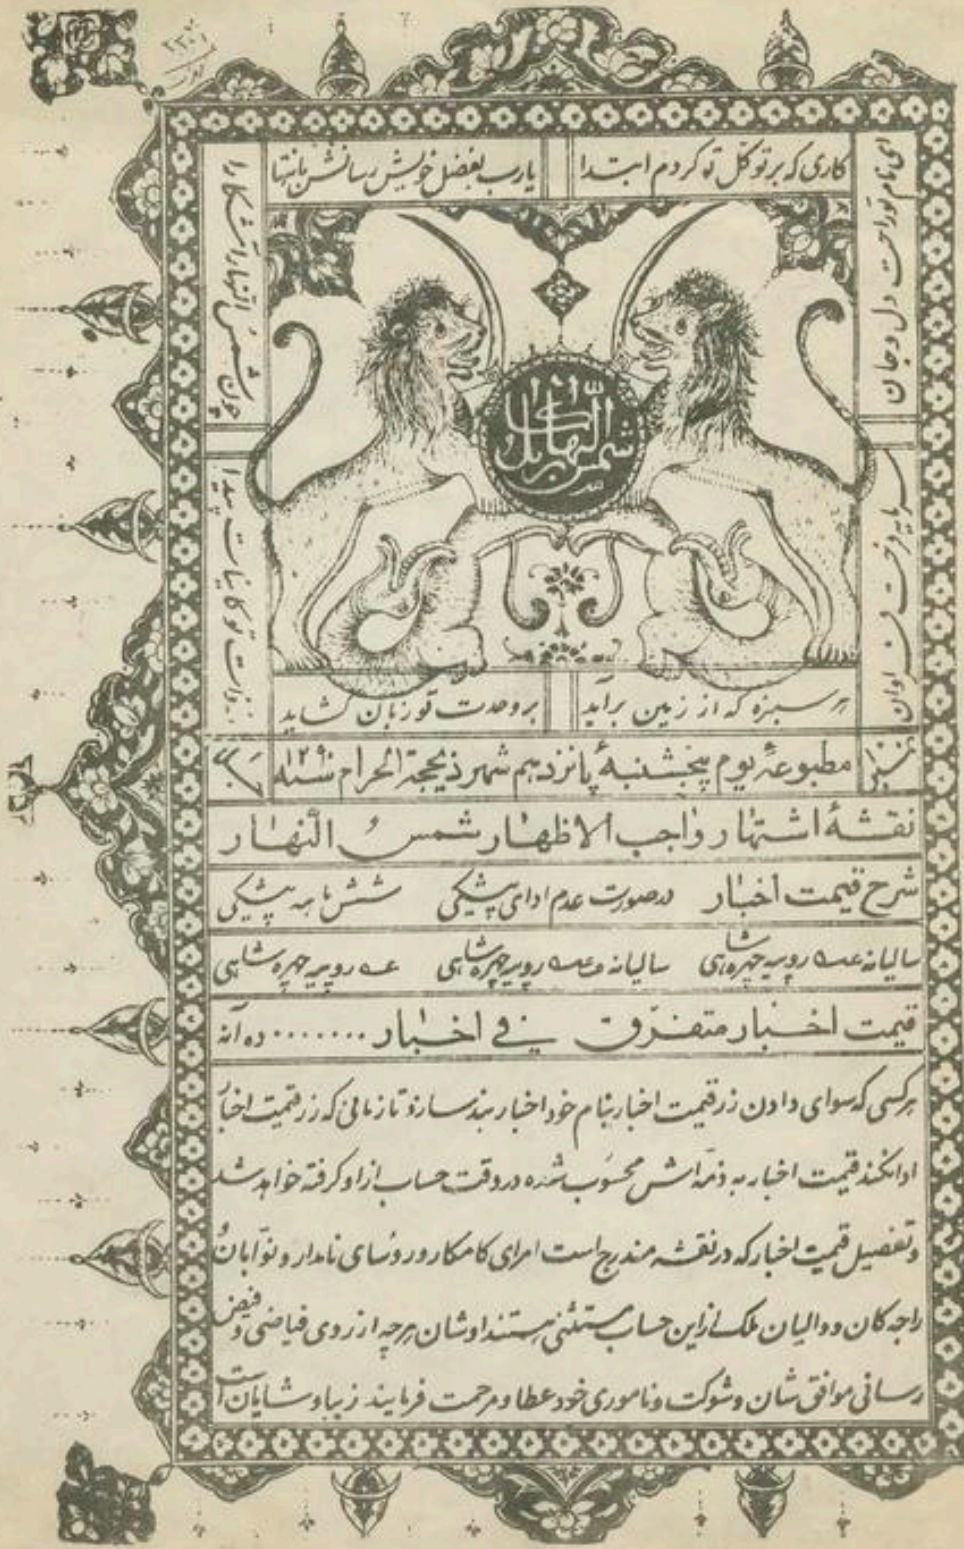 کاری که بر توکل تو کردم ابتدا
یارب بفضل خویش رسانش بانتها
ای نام تو راحت دل و جان
چون شمس النهار آشکارا
شمس النهار کابل
ز ذات تو کاینات پیدا
هر سبزه که از زمین برآید
بر وحدت تو زبان گشاید
مطبوعهٔ یوم پنجشنبهٔ پانزدهم شهر ذیحجة الحرام سنه ۱۲۹۰
نقشهٔ اشتهار واجب الاظهار شمس النهار
شرح قیمت اخبار در صورت عدم ادای پیشکی شش ماهه پیشکی
سالیانه روپیه چهره شاهی سالیانه روپیه چهره شاهی روپیه چهره شاهی
قیمت اخبار متفرق فی اخبار ........ ده آنه
هر کسی که سوای دادن زر قیمت اخبار بنام خود اخبار بند سازد تا زمانی که زر قیمت اخبار
ادا نکند قیمت اخبار به ذمه اش محسوب شده در وقت حساب از او کرفته خواهد شد
و تفصیل قیمت اخبار که در نقشه مندرج است امرای کامکار و روسای نامدار و نوابان و
راجه کان و والیان ملک از این حساب مستثنی هستند اوشان هر چه از روی فیاضی و فیض
رسانی موافق شان و شوکت و ناموری خود عطا و مرحمت فرمایند زیبا و شایان است